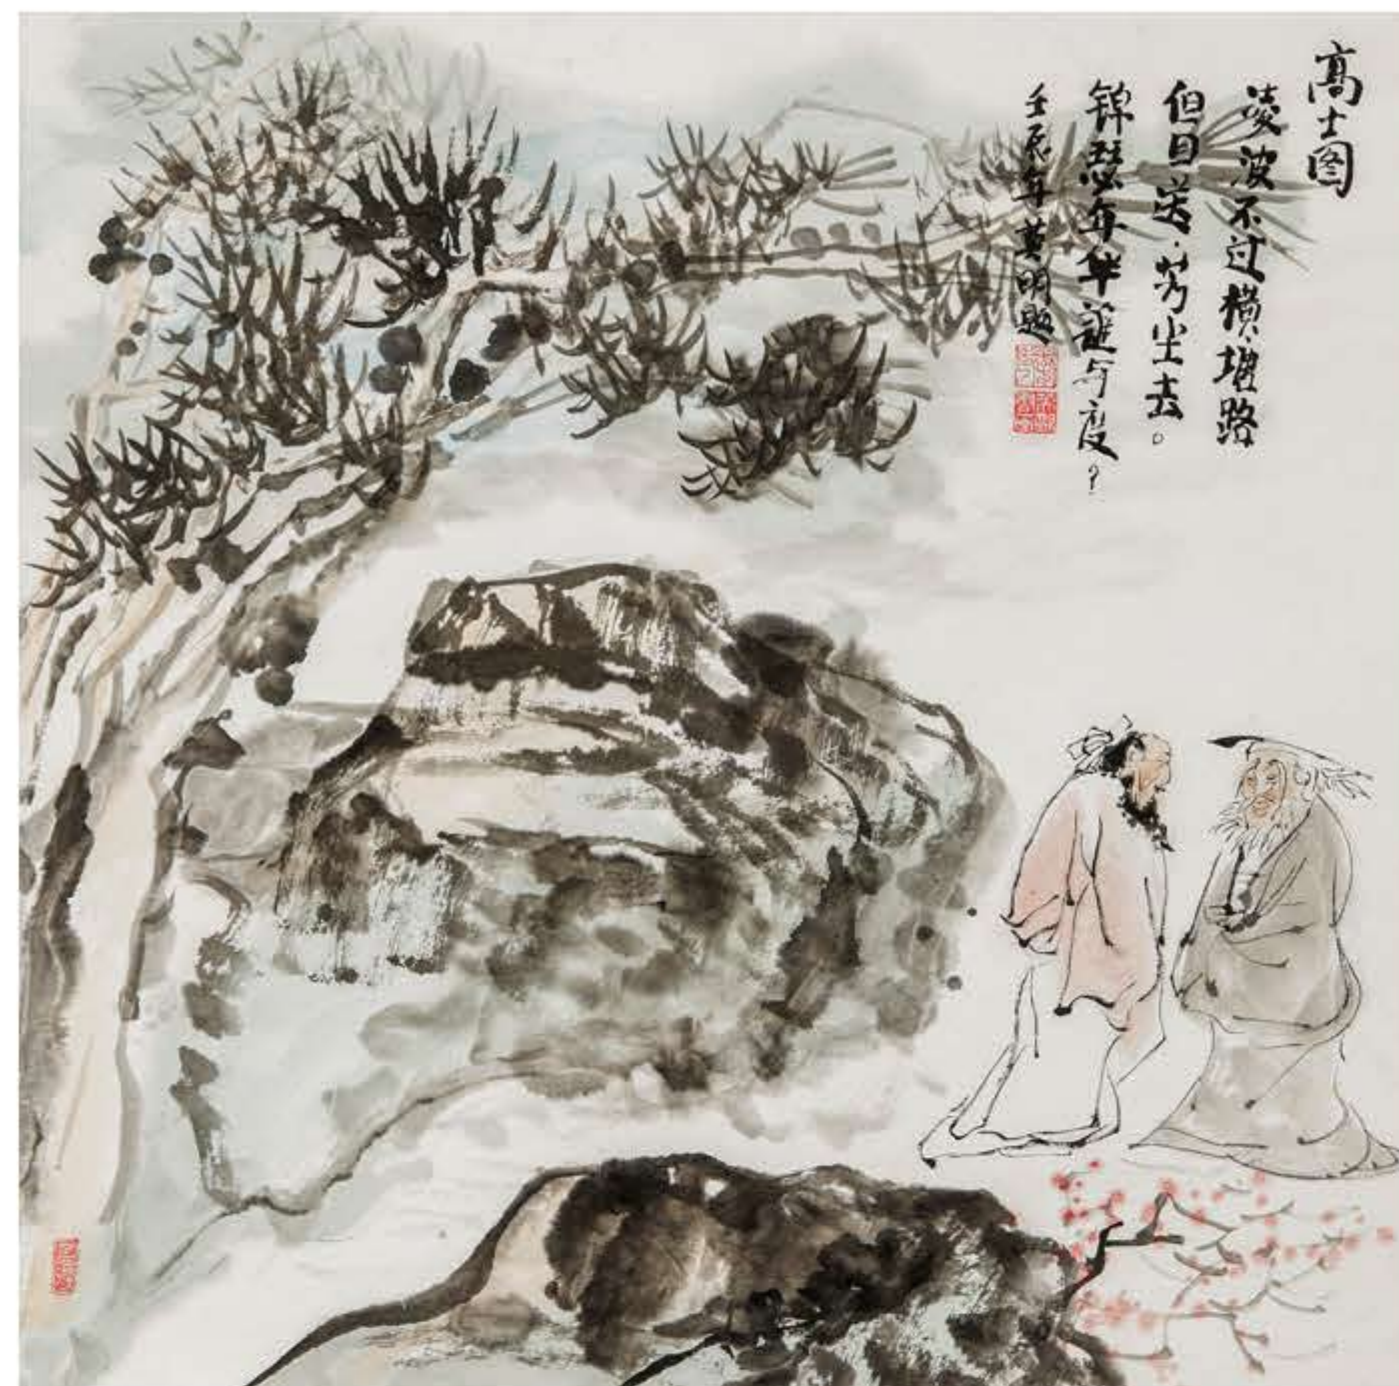 高士图
凌波不过横塘路
但目送·芳尘去。
锦瑟年华谁与度？
壬辰年 明题